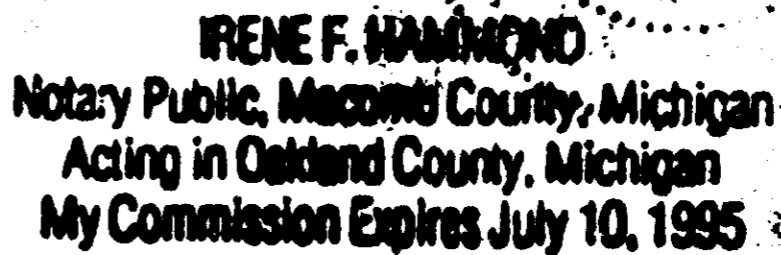 IRENE F. HAMMOND
Notary Public, Macomb County, Michigan
Acting in Oakland County, Michigan
My Commission Expires July 10, 1995